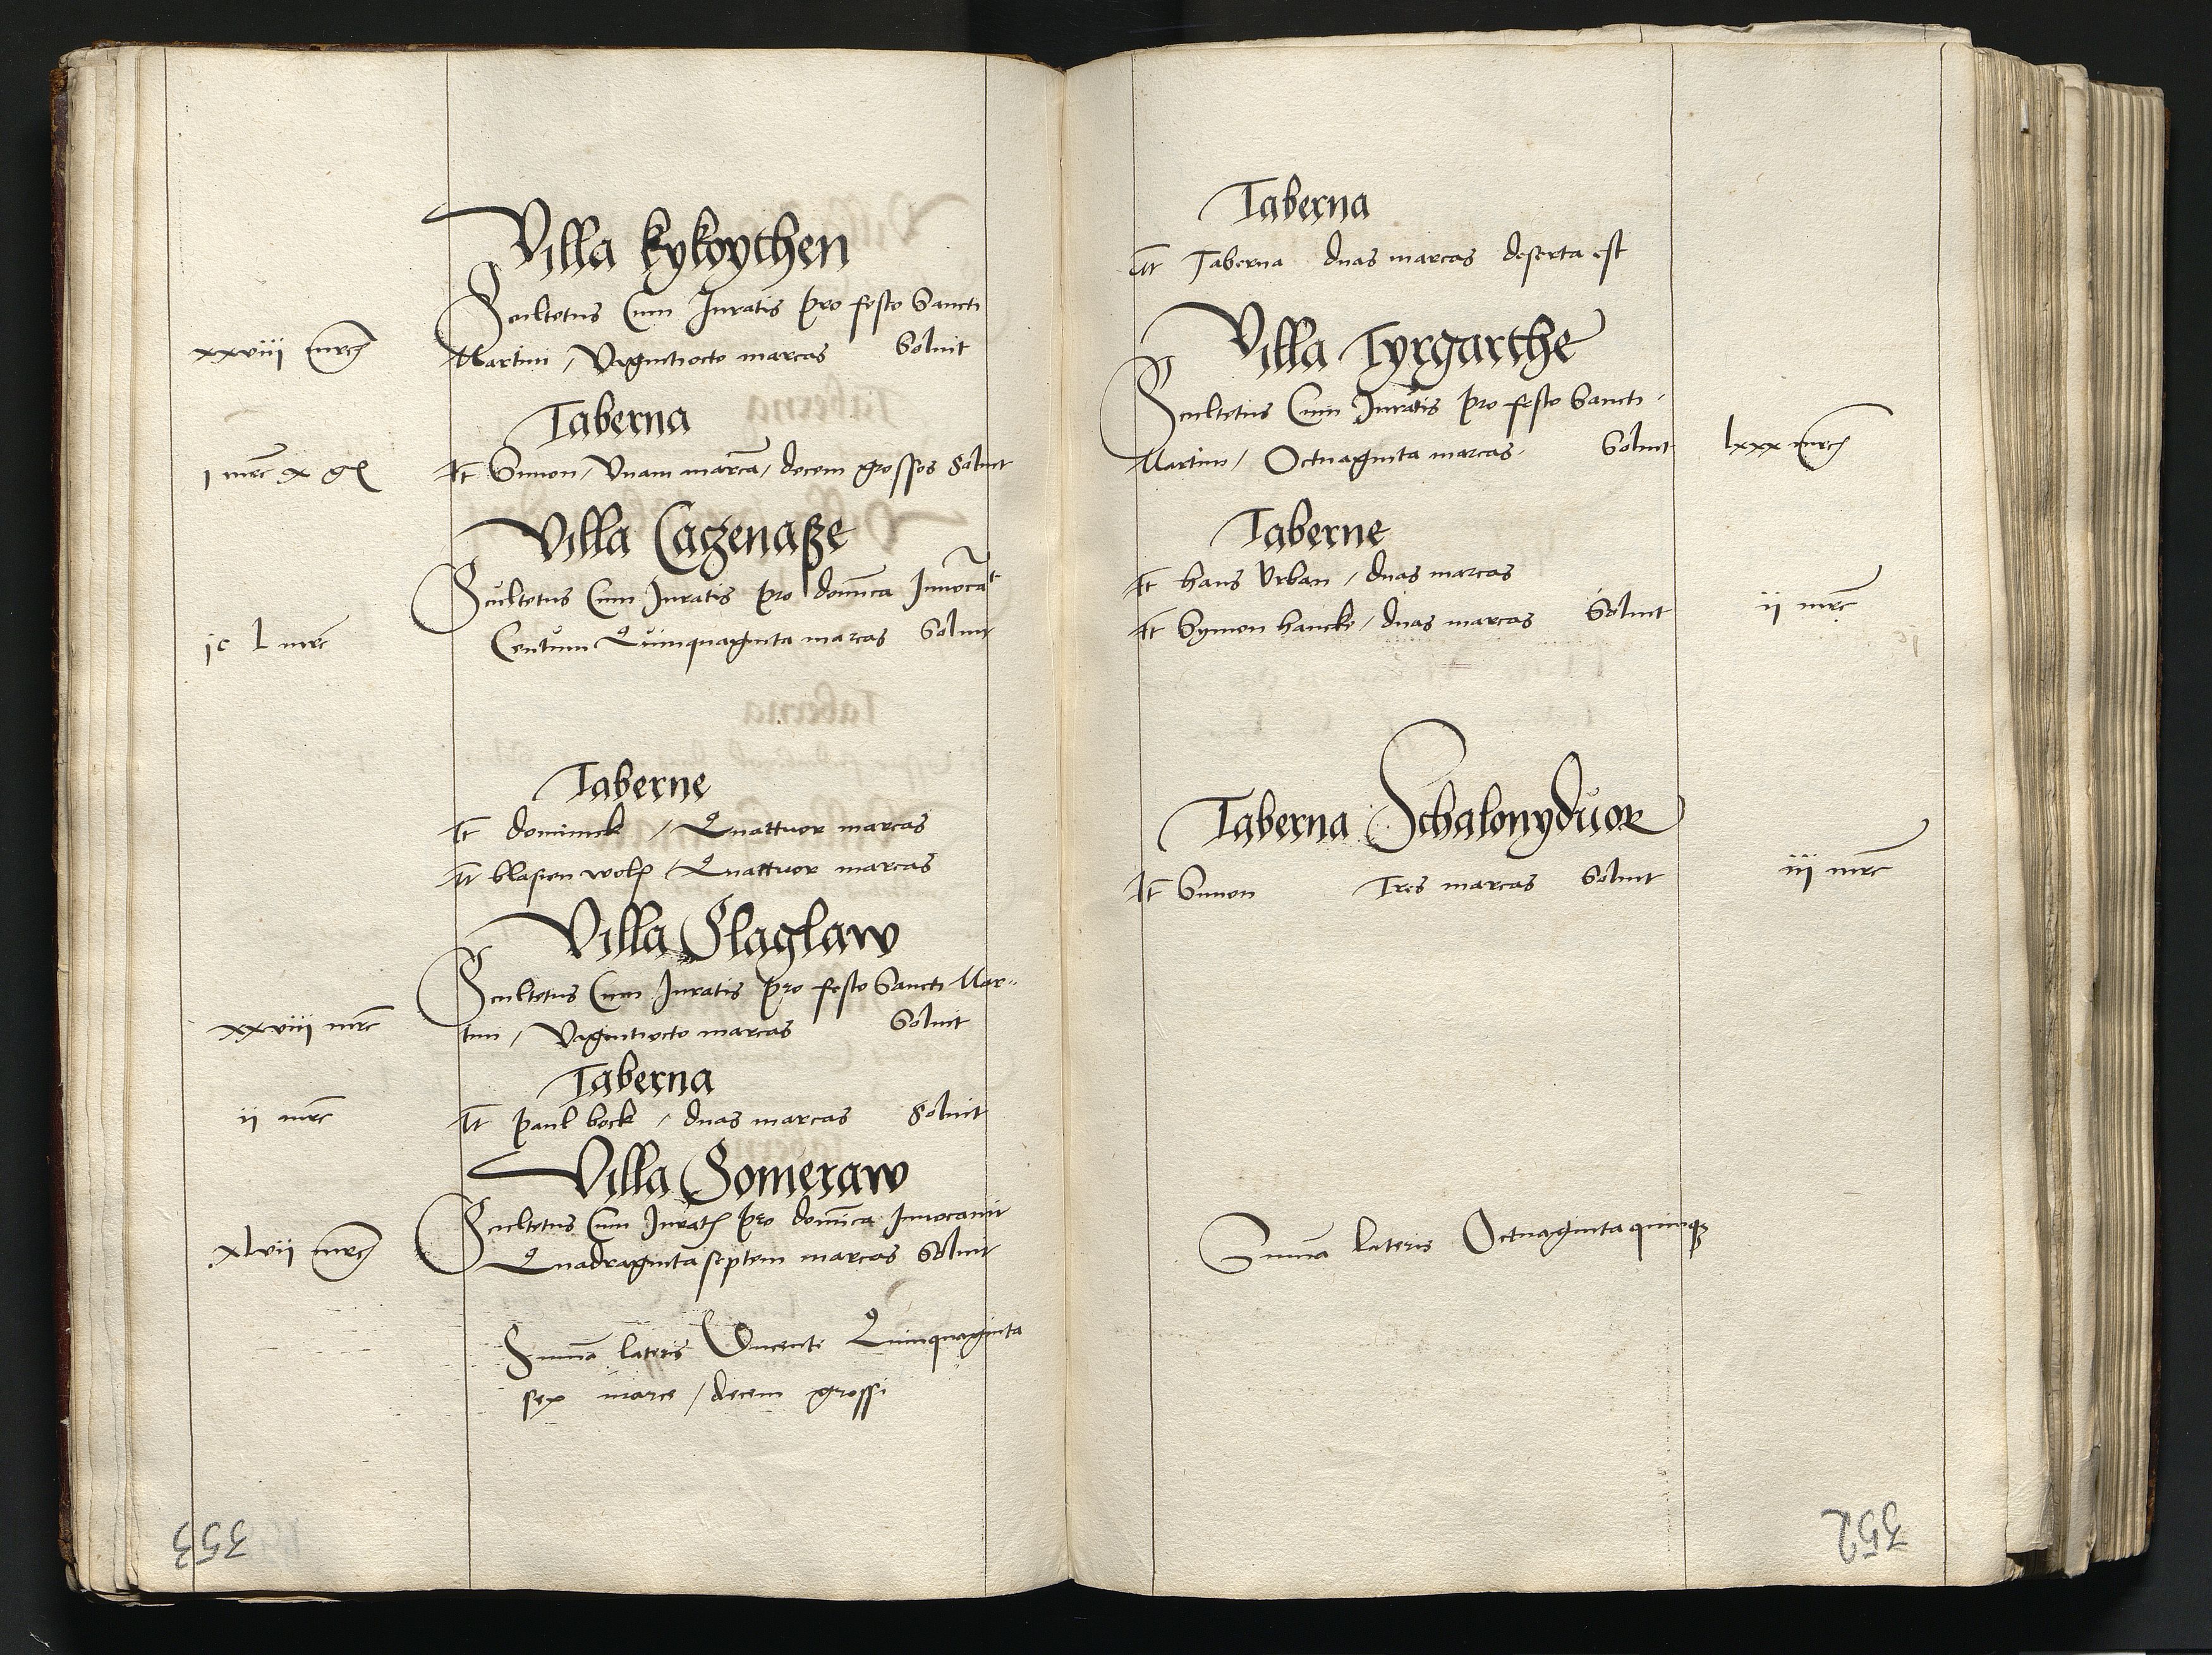 Villa kykoythen
Scultetus Cum Juratis pro festo Sancti
xxviii mrc Martini / Vigintiocto marcas Soluit
Taberna
i mrc x g It Simon / Vnam marcā / decem grossos Soluit
Villa Cagenaße
Scultetus Cum Juratis pro domīca Inuocāt
jc l mrc Centum Quinquaginta marcas Soluit
Taberne
It dominick / Quattuor marcas
It blasien / Quattuor marcas
Villa Slaglaw
Scultetus Cum Juratis pro festo Sancti Mar
xxviii mrc tini / Vigintiocto marcas Soluit
Taberna
ii mrc It paul bock / duas marcas Soluit
Villa Someraw
Scultetus Cum Jurat pro domīca Inuocauit
xlvii mrc Quadragintaseptem marcas Soluit
Summa lateris Ducenti Quinquaginta
sex marce / decem grossi
353
Taberna
It Taberna duas marcas deserta est
Villa Tyrgarthe
Scultetus Cum Juratis pro festo Sancti
Martini / Octuaginta marcas Soluit lxxx mrc
Taberne
It hans Vrban / duas marcas
It Symon hancke / duas marcas Soluit ii mrc
Taberna Schalonyduor
It Simon Tres marcas Soluit iii mrc
Summa lateris Octuagintaquinqȝ
352